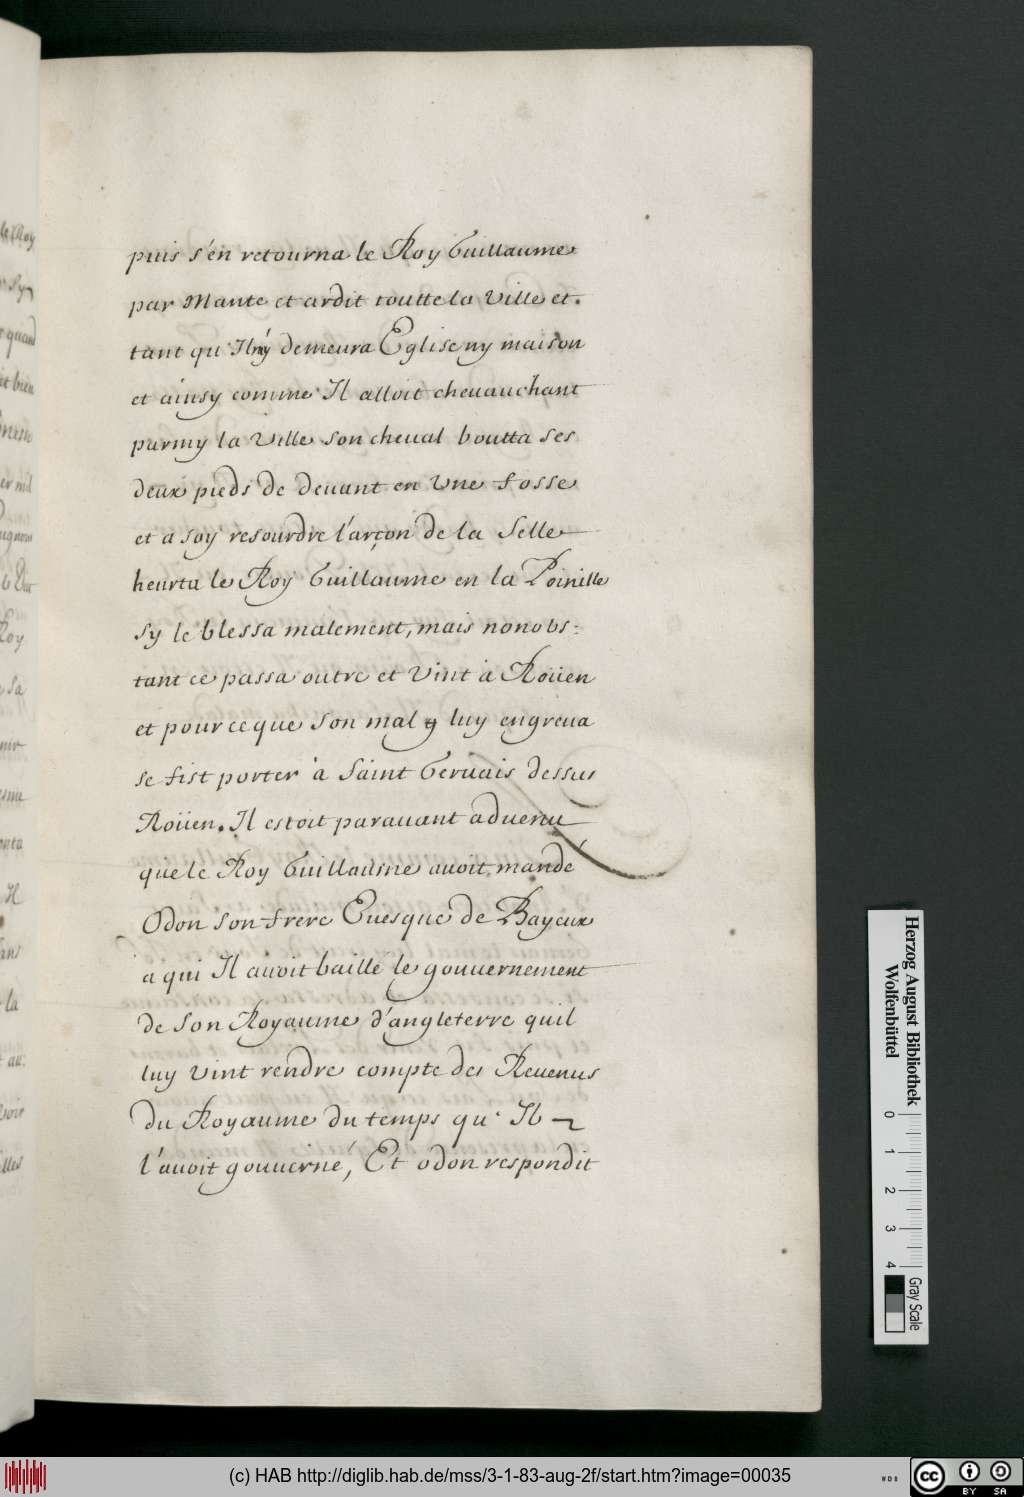 puis s'én retourna le Roy Guillaume
par Mante et ardit toutte la Ville et.
tant qu'Il ný demeura Eglise ny maison
et ainsy comme Il alloit cheuauchant
parmy la Ville son cheual boutta ses
deux pieds de deuant en Vne fosse
et a soy resourdre l'arçon de la Selle
heurta le Roy Guillaume en la Poinille
sy le blessa malement, mais nonobs:
tant ce passa outre et Vint à Roüen
et pour ce que son mal luy engreua
se fist porter à Saint Geruais dessus
Roüen. Il estoit parauant aduenu
que le Roy Guillaume auoit mandé
Odon son frere Euesque de Bayeux
a qui Il auoit baille le gouuernement
de son Royaume d'angleterre quil
luy Vint rendre compte des Reuenus
du Royaume du temps qu'Il
l'auoit gouuerné, Et odon respondit
Herzog August Bibliothek
Wolfenbüttel
0 1 2 3 4
Gray Scale
(c) HAB http://diglib.hab.de/mss/3-1-83-aug-2f/start.htm?image=00035
cc BY SA